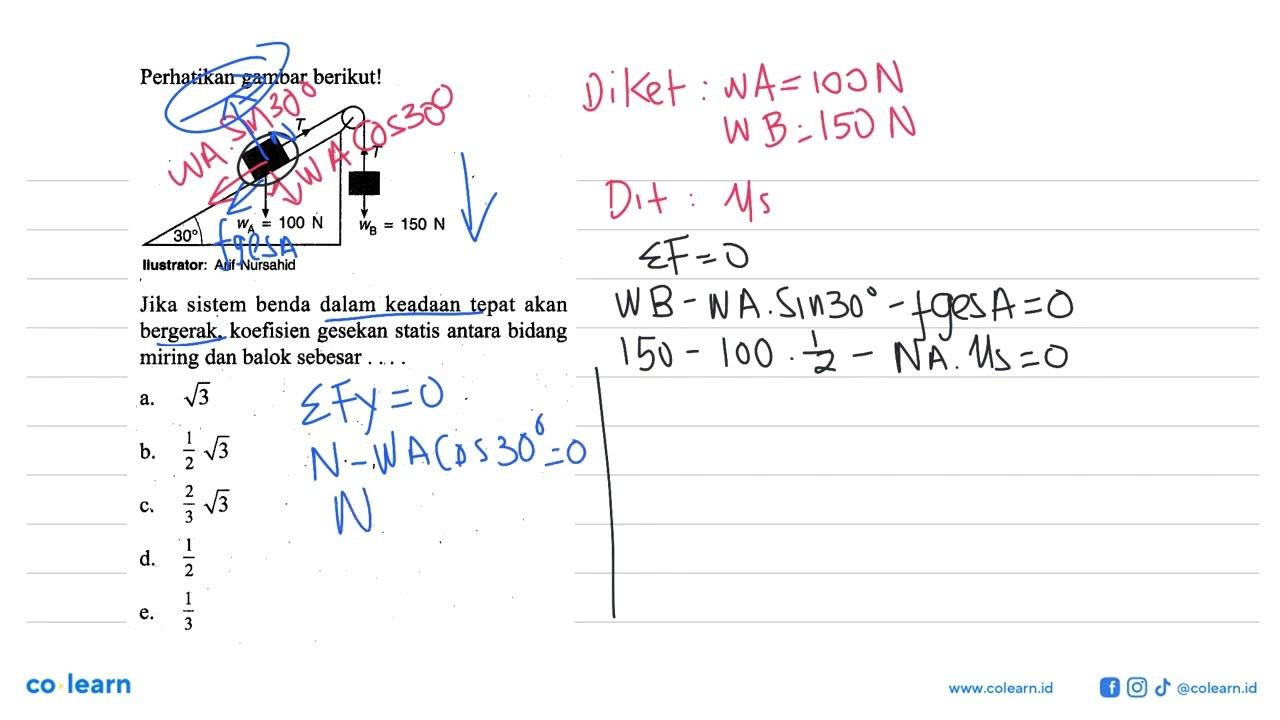 Perhatikan gambar berikut!
WA.Sin30°
WA Cos30°
N
T
T
30°
wA = 100 N
wB = 150 N
fgesA
Ilustrator: Arif Nursahid
Jika sistem benda dalam keadaan tepat akan
bergerak, koefisien gesekan statis antara bidang
miring dan balok sebesar . . . .
a. √3
b. 1/2 √3
c. 2/3 √3
d. 1/2
e. 1/3
ΣFy = 0
N - WA Cos 30° = 0
N
Diket : WA = 100 N
WB = 150 N
Dit : μs
ΣF = 0
WB - WA. Sin30° - fgesA = 0
150 - 100 . 1/2 - NA. μs = 0
co learn
www.colearn.id
@colearn.id